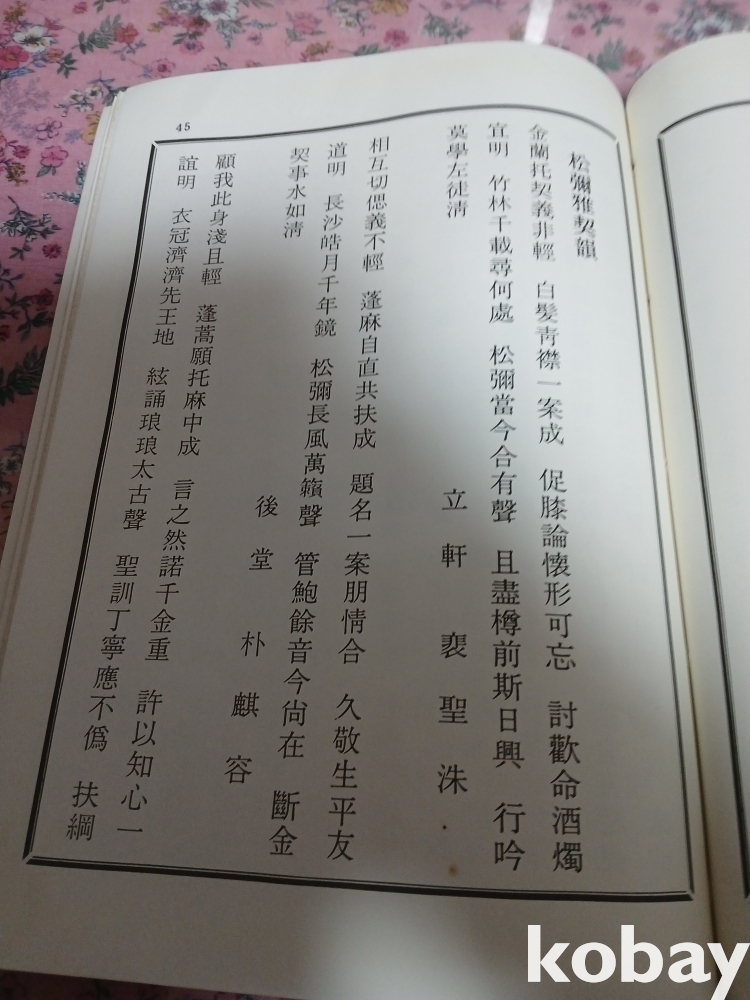 松彌雅契韻
金蘭托契義非輕　白髮靑襟一案成　促膝論懷形可忘　討歡命酒燭
宜明　竹林千載尋何處　松彌當今合有聲　且盡樽前斯日興　行吟
莫學左徒淸
立軒裵聖洙
相互切偲義不輕　蓬麻自直共扶成　題名一案朋情合　久敬生平友
道明　長沙皓月千年鏡　松彌長風萬籟聲　管鮑餘音今尙在　斷金
契事水如淸
後堂朴麒容
顧我此身淺且輕　蓬蒿願托麻中成　言之然諾千金重　許以知心一
誼明　衣冠濟濟先王地　絃誦琅琅太古聲　聖訓丁寧應不僞　扶綱
45
kobay